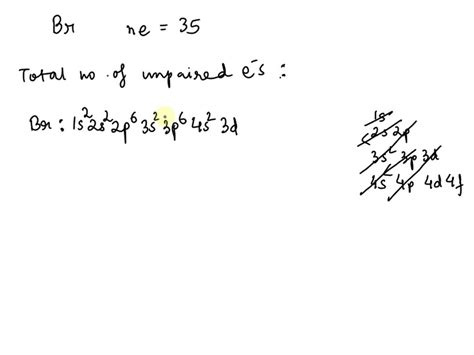 Br ne = 35
Total no. of unpaired e⁻s :
Br : 1s² 2s² 2p⁶ 3s² 3p⁶ 4s² 3d
1s
2s 2p
3s² 3p 3d
4s² 4p 4d 4f